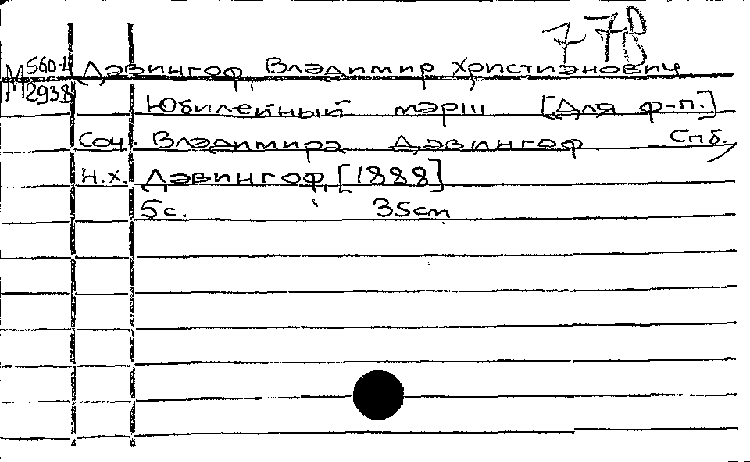 77В
М 560-4 Дэвингоф Владимир Христианович
293В
Юбилейный марш [Для ф-п.]
Соч. Владимира Дэвингоф. Спб,
Н.Х. Дэвингоф, [1888]
5с. 35cm